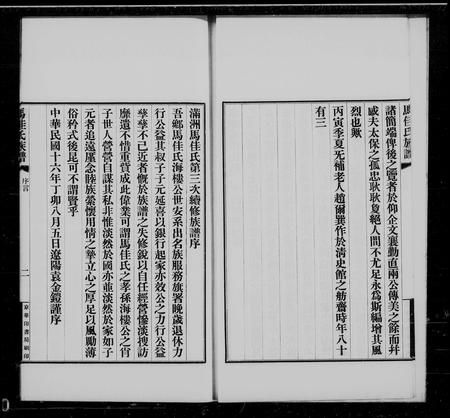 諸簡端俾後之覽者於仰企文襄勤直兩公傳美之餘而幷
威夫太保之孤忠耿耿夐絕人間不尤足永爲斯編增其風
烈也歟
丙寅季夏无補老人趙爾巽作於清史館之舫齋時年八十
有三
馬佳氏族譜
滿洲馬佳氏第三次續修族譜序
吾鄉馬佳氏海樓公世安系出名族服務旗署晚歲退休力
行公益其叔子子元延喜以銀行起家亦效公之力行公益
孳孳不已近者慨於族譜之失修銳以自任經營慘淡搜訪
靡遺不惜重貲成此偉業可謂馬佳氏之孝孫海樓公之肖
子世人營營自謀其私非惟淡然於國亦並淡然於家如子
元者追遠厪念睦族縈懷用情之摯立心之厚足以風勵薄
俗矜式後昆可不謂賢乎
中華民國十六年丁卯八月五日遼陽袁金鎧謹序
馬佳氏族譜
序言
二
京華印書局刷印